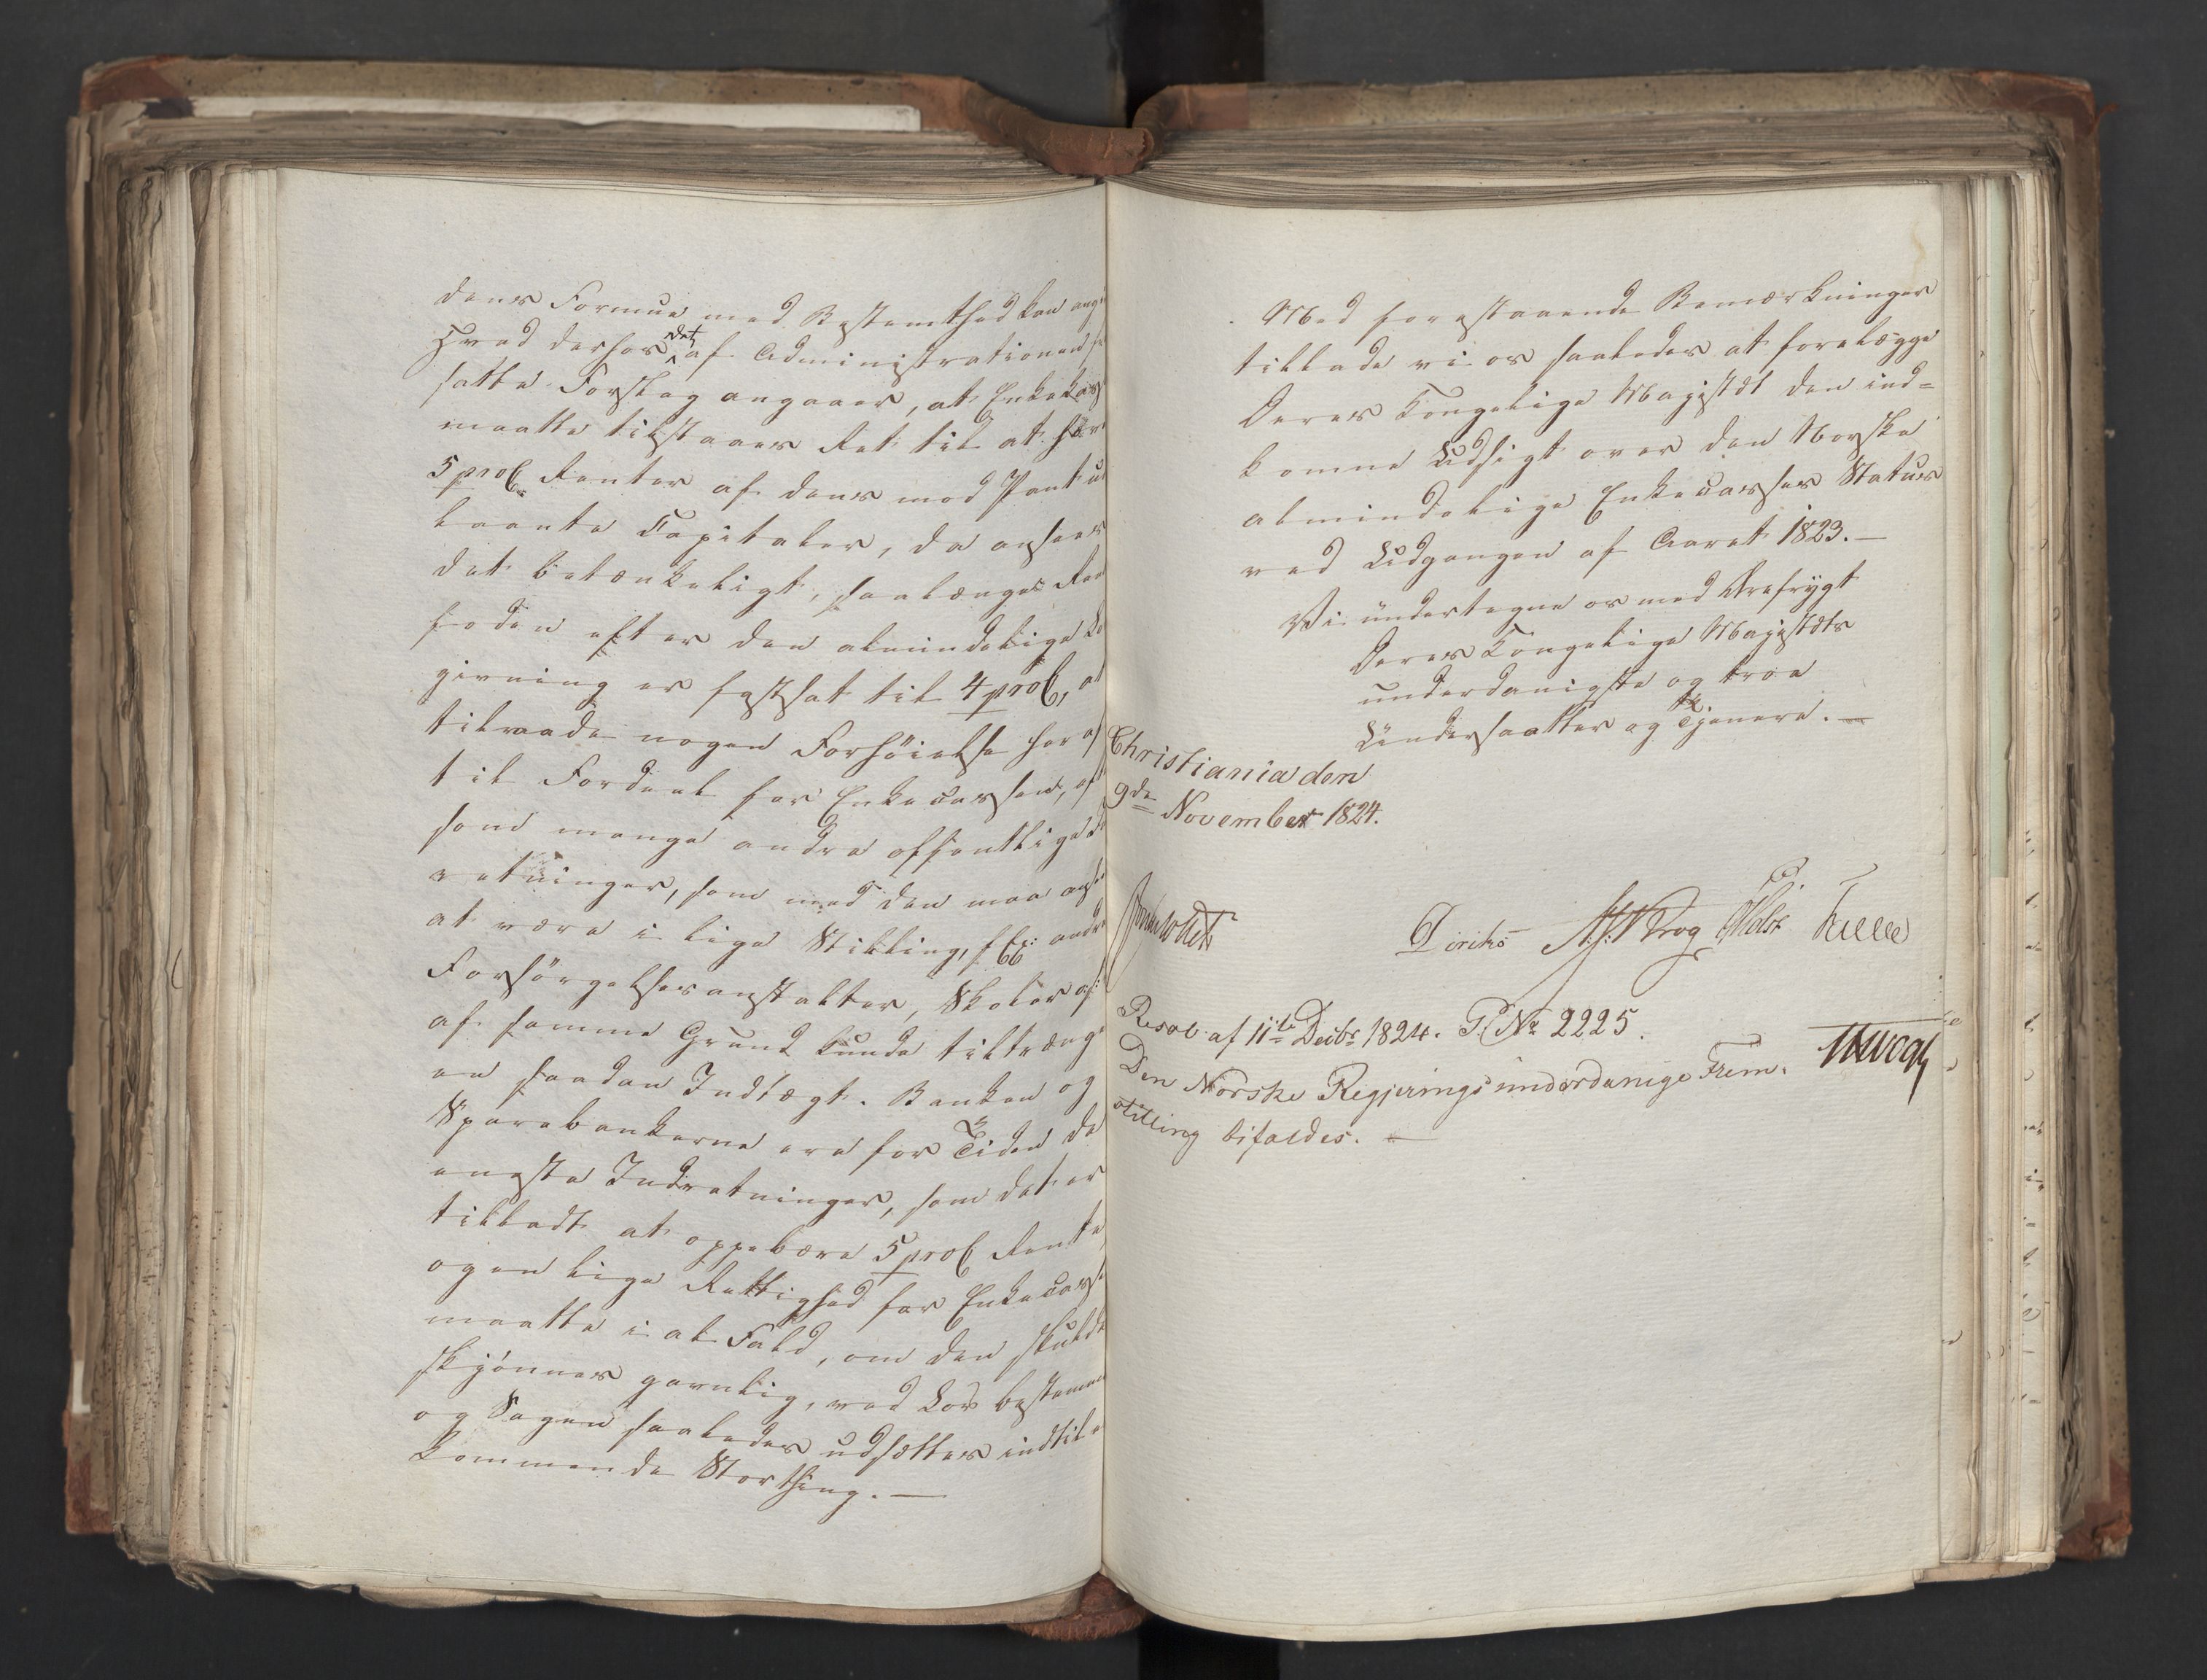 dens Formue med Bestemthed kan ang
Hvad derhos det af Administrationen
satte Forslag angaaer, at Enkekas
maatte tilstaaes Ret til at
5 proC. Renter af dens mod Pant ud
laante Capitaler, da ansees
det betænkeligt, saalænge Ren
foden efter den almindelige Lo
givning er fastsat til 4 proC, at
tilraade nogen Forhöielse heraf
til Fordeel for Enkecassen,
som mange andre offentlige
retninger, som med den maa anse
at være i lige Stilling, f. Ex: andre
Forsörgelsesanstalter, Skoler
af samme Grund kunde tiltrænge
en saadan Indtægt. Banken og
Sparebankerne ere for Tiden de
eneste Indretninger, som det er
tilladt at oppebære 5 proC Rente
og en lige Rettighed for Enkecasse
maatte i al Fald, om den skulde
skjönnes gavnlig, ved Lov bestemmes
og Sagen saaledes udsættes indtil
kommende Storthing. —
Med forestaaende Bemærkninger
tillade vi os saaledes at forelægge
Deres Kongelige Majestæt den ind=
komne Udsigt over den Norske
almindelige Enkecasses Status
ved Udgangen af Aaret 1823. —
Vi undertegne os med Ærefrygt
Deres Kongelige Majestæts
underdanigste og troe
Undersaatter og Tjenere. —
Christiania den
9de November 1824.
Diriks Krog Holst
Resol. af 11te Decbr 1824. P. No 2225.
Den Norske Regjerings underdanige Frem-
stilling bifaldes. —